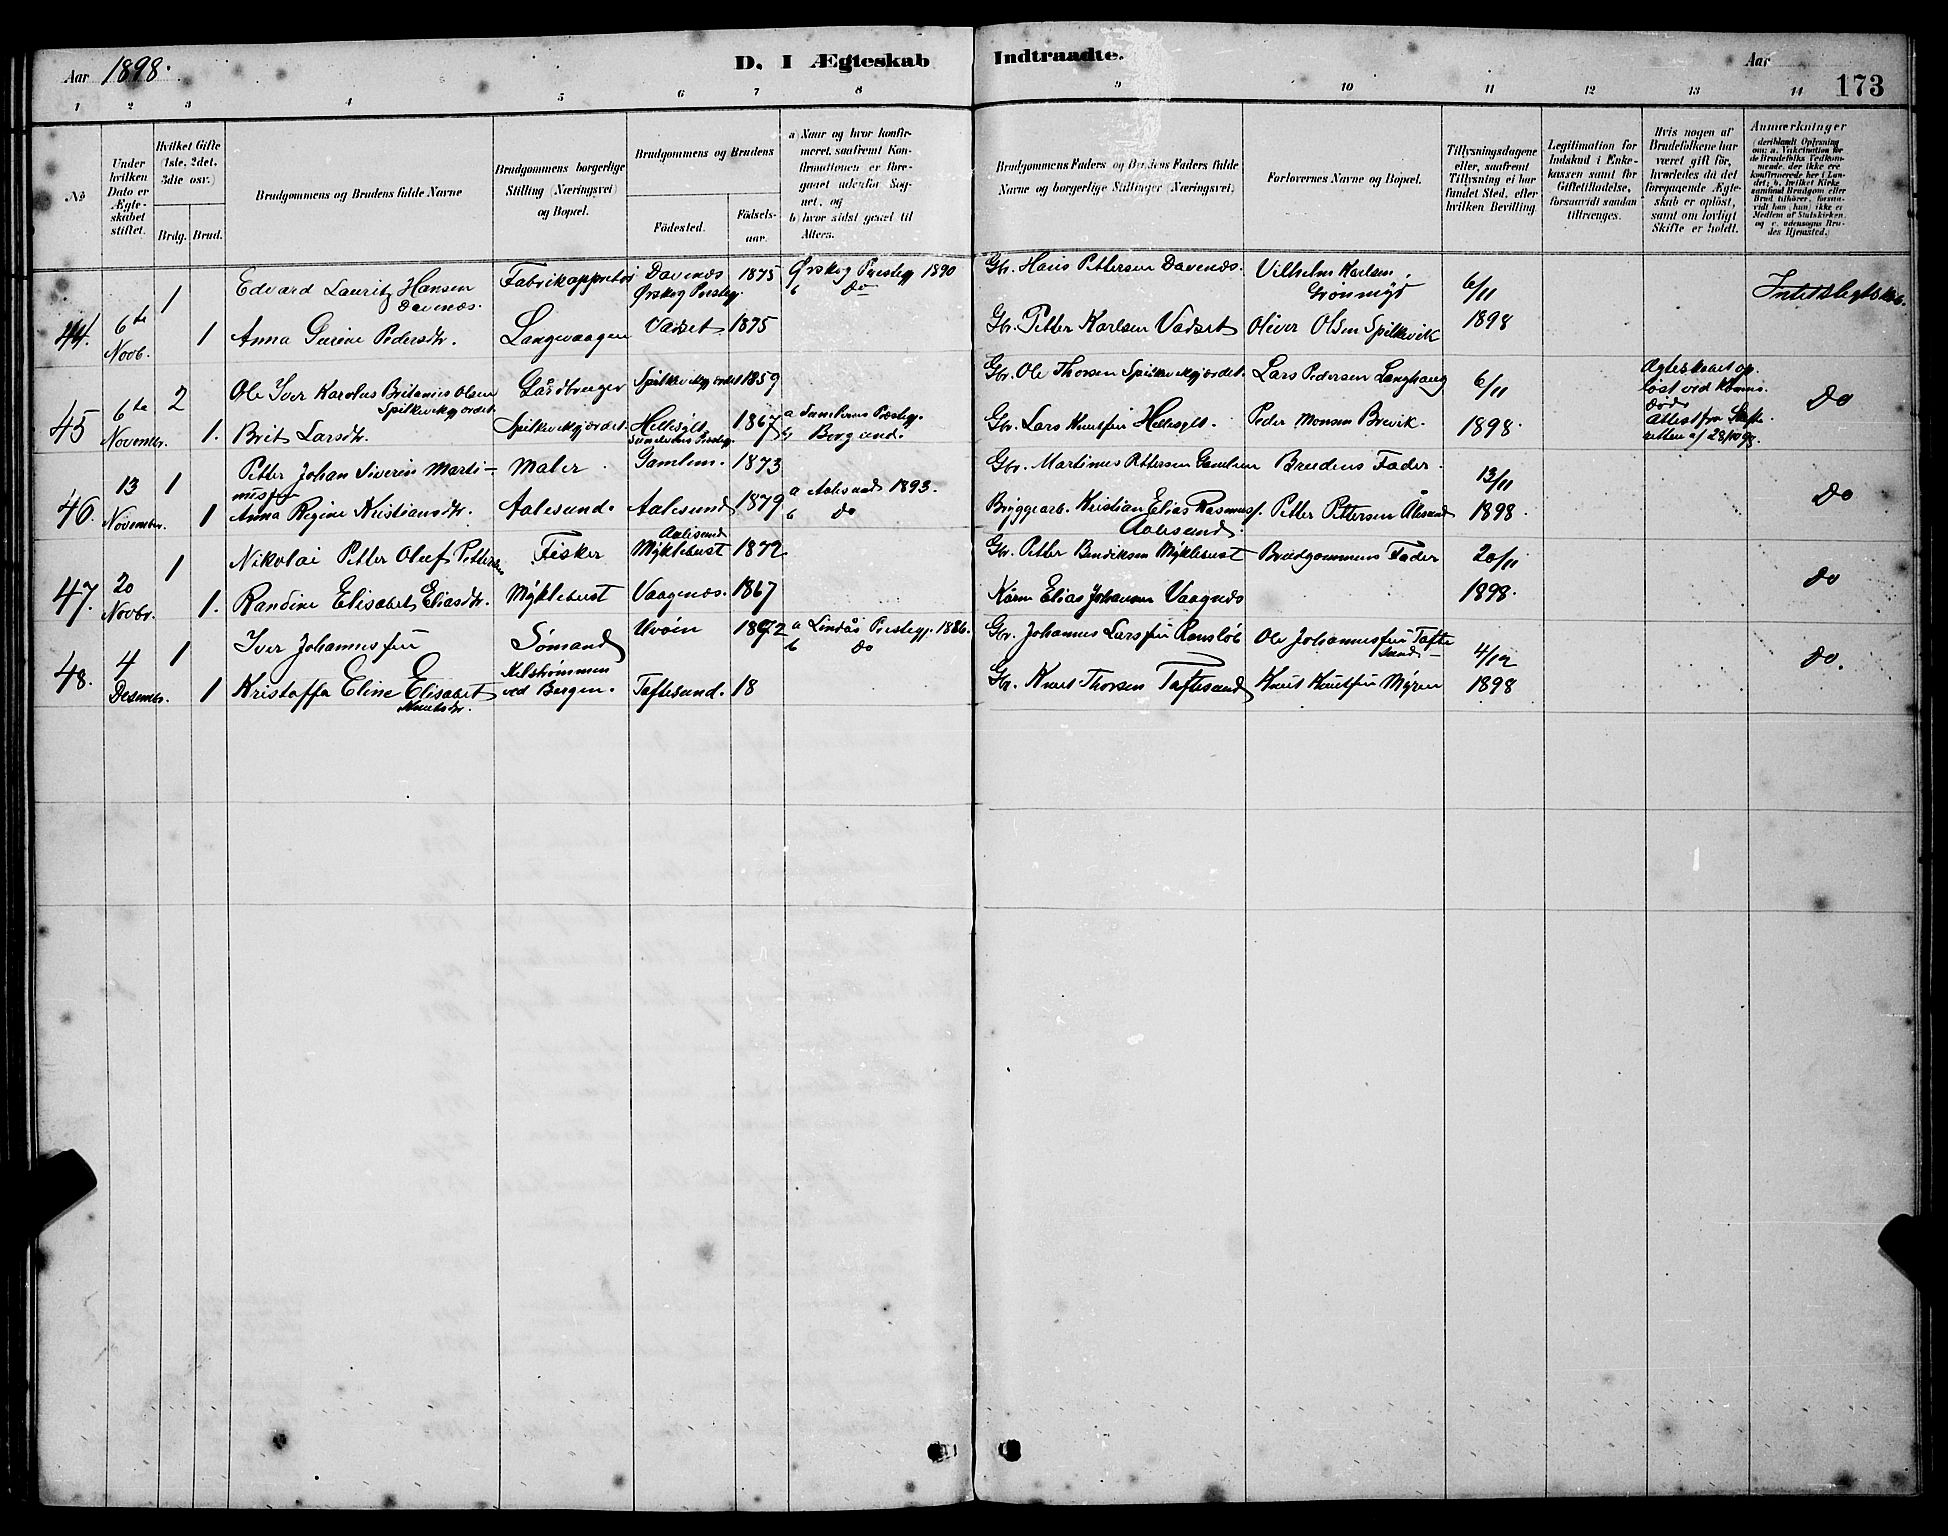 Aar 1898.
D. I Ægteskab Indtraadte.
Aar
173
1 2 3 4 5 6 7 8 9 10 11 12 13 14
No
Under hvilken Dato er Ægteskabet stiftet.
Hvilket Gifte (1ste, 2det, 3die osv.)
Brdg. Brud.
Brudgommens og Brudens fulde Navne
Brudgommens borgerlige Stilling (Næringsvei) og Bopæl.
Brudgommens og Brudens
Födested.
Födselsaar.
a) Naar og hvor konfirmeret, saafremt Konfirmationen er foregaaet udenfor Sognet, og
b) hvor sidst gaaet til Alters.
Brudgommens Faders og Brudens Faders fulde Navne og borgerlige Stillinger (Næringsvei)
Forlovernes Navne og Bopæl.
Tillysningsdagene eller, saafremt Tillysning ei har fundet Sted, efter hvilken Bevilling
Legitimation for Indskud i Enkekassen samt for Giftetilladelse, forsaavidt saadan tiltrænges.
Hvis nogen af Brudefolkene har været gift för, hvorledes da det foregaaende Ægteskab er oplöst, samt om lovligt Skifte er holdt.
Anmærkninger (deriblandt Oplysning om: a. Vakcination for de Brudefolks Vedkommende, der ikke ere konfirmerede her i Landet; b. hvilket Kirkesamfund Brudgom eller Brud tilhörer, forsaavidt han (hun) ikke er Medlem af Statskirken, og c. udensogns Brudes Hjemsted.)
44. 6te Novb. 1 Edvard Lauritz Hansen Davenæs. Fabrikappretör Davenæs Ørskog Prestegj. 1875 Ørskog Prestegj 1890 b do Gbr. Hans Pettersen Davenæs. Vilhelm Karlsen Grønmyr 6/11 Intet slegtskab.
1 Anna Gurine Pedersdtr. Langevaagen Vadset 1875 Gbr. Petter Karlsen Vadset Oliver Olsen Spilkevik 1898
45 6te Novembr. 2 Ole Iver Karolus Britanius Olsen Spilkevikgjordet. Gårdbruger Spilkevikgjordet 1859 Gbr. Ole Thorsen Spilkevikgjordet. Lars Pedersen Langhaug 6/11 Ægteskabet opløst ved Konens død Attest fra Skifteretten af 28/10 98. Do
1. Brit Larsdtr. Spilkevikgjordet. Hellesylt Sunelvens Prestegj. 1867 a Sunelvens Prestegj. b Borgund. Gbr. Lars Knutsen Hellesylt. Peder Monsen Brevik. 1898.
46. 13 November. 1 Petter Johan Siverin Martinussen Maler. Gamlem. 1873 Gbr. Martinus Pettersen Gamlem Brudens Fader. 13/11 Do
1 Anna Regine Kristiansdtr. Aalesund. Aalesund 1879 a Aalesund 1893. b Do Bryggearb. Kristian Elias Rasmusf. Aalesund. Petter Pettersen Ålesund 1898.
47. 20 Novbr. 1 Nikolai Petter Oluf Pettersen Fisker Aalesund Myklebust 1872 Gbr. Petter Bendiksen Myklebust Brudgommens Fader 20/11 Do
1. Randine Elisabet Eliasdtr. Myklebust Vaagnæs. 1867 Kårm. Elias Johansen Vaagnæs 1898.
48. 4 Desembr. 1 Iver Johannessen Sømand Uvöin 1872 a Lindås Prestegj. 1886. b Do Gbr. Johannes Larssen Ole Johannessen Taftesund 4/12 Do.
1 Kristoffa Eline Elisabet Knutsdtr. ved Bergen. Taftesund. 18 Gbr. Knut Thorsen Taftesund Knut Knutsen Myren 1898